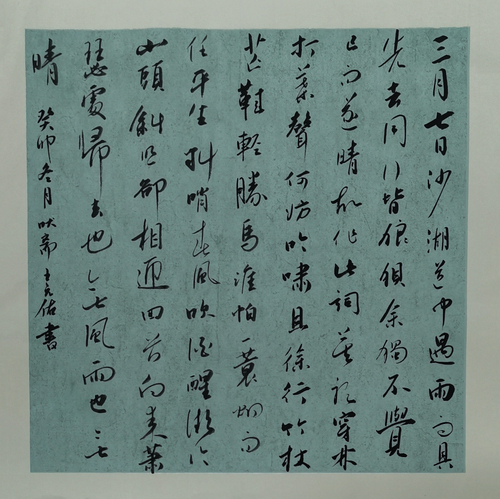 三月七日沙湖道中遇雨雨具
先去同行皆狼狽余獨不覺
已而遂晴故作此詞莫聽穿林
打葉聲何妨吟嘯且徐行竹杖
芒鞋輕勝馬誰怕一蓑烟雨
任平生料峭春風吹酒醒微冷
山頭斜照卻相迎回首向來蕭
瑟處歸去也無風雨也無
晴 癸卯冬月佑書